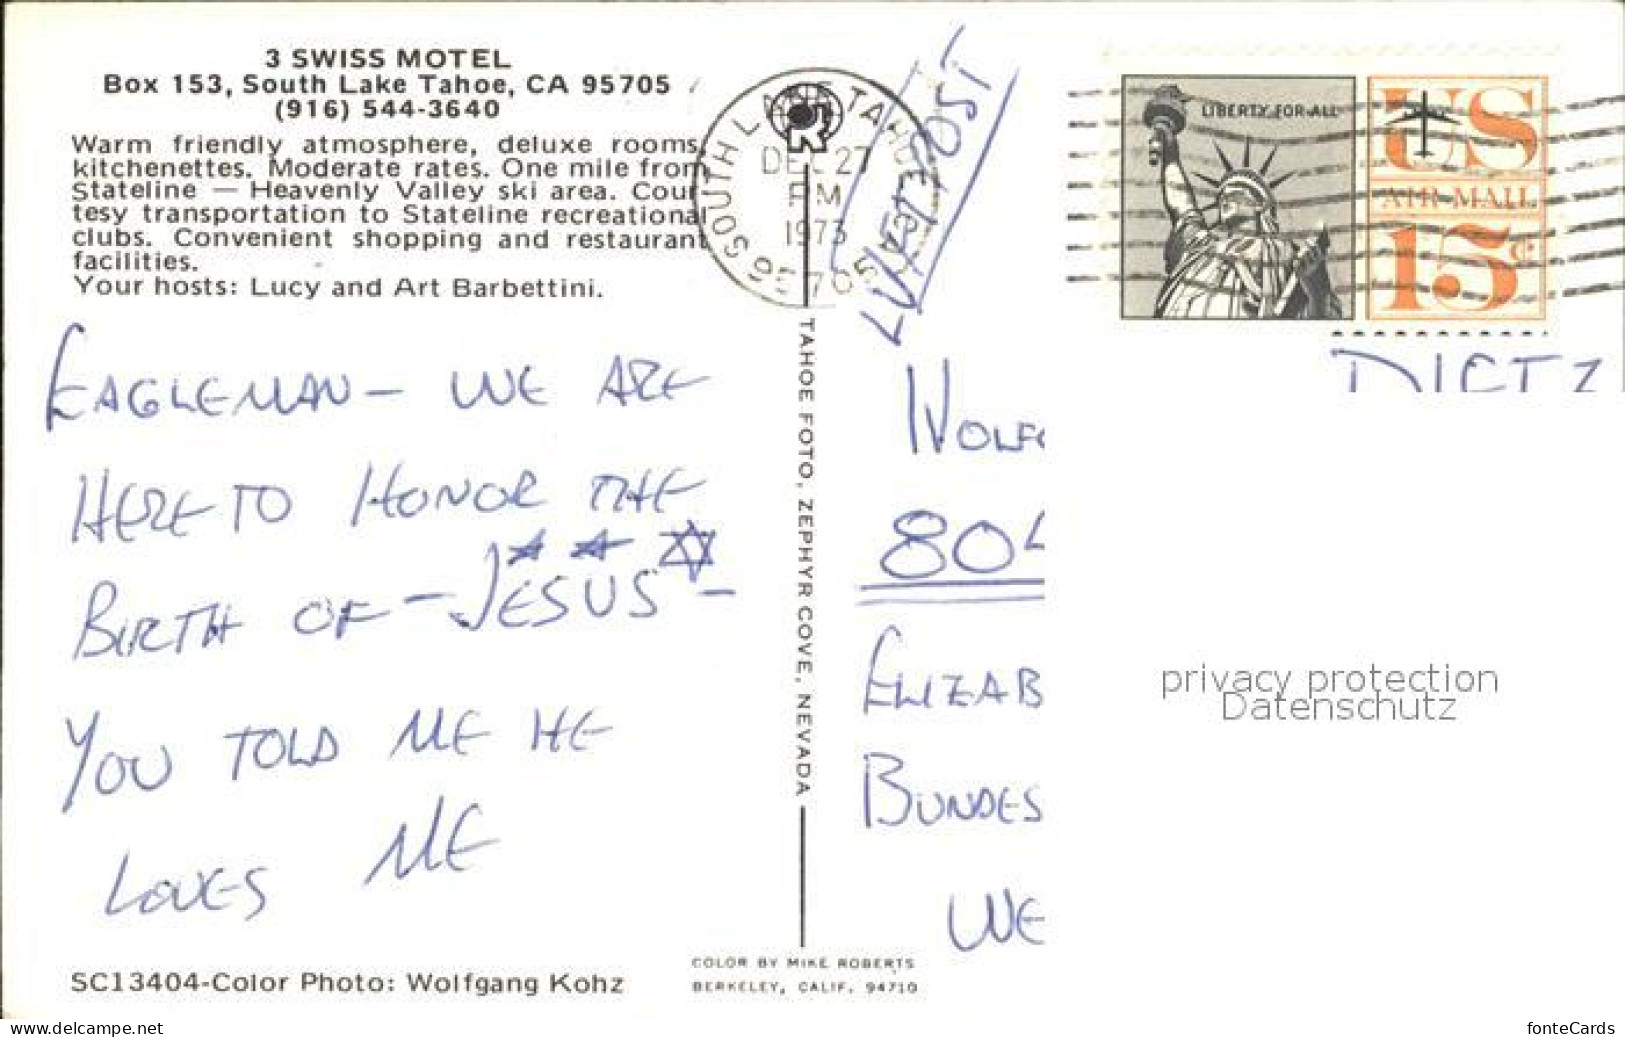 3 SWISS MOTEL
Box 153, South Lake Tahoe, CA 95705
(916) 544-3640
Warm friendly atmosphere, deluxe rooms,
kitchenettes. Moderate rates. One mile from
Stateline — Heavenly Valley ski area. Cour
tesy transportation to Stateline recreational
clubs. Convenient shopping and restaurant
facilities.
Your hosts: Lucy and Art Barbettini.
EAGLEMAN – WE ARE
HERE TO HONOR THE
BIRTH OF – JESUS –
YOU TOLD ME HE
LOVES ME
SC13404-Color Photo: Wolfgang Kohz
TAHOE FOTO, ZEPHYR COVE, NEVADA
COLOR BY MIKE ROBERTS
BERKELEY, CALIF. 94710
SOUTH LAKE TAHOE
DEC 27
PM
1973
95705
LUFTPOST
LIBERTY FOR ALL
US
AIR MAIL
15¢
DIETZ
WOLFG
804
ELIZAB
BUNDES
WE
privacy protection
Datenschutz
www.delcampe.net
fonteCards